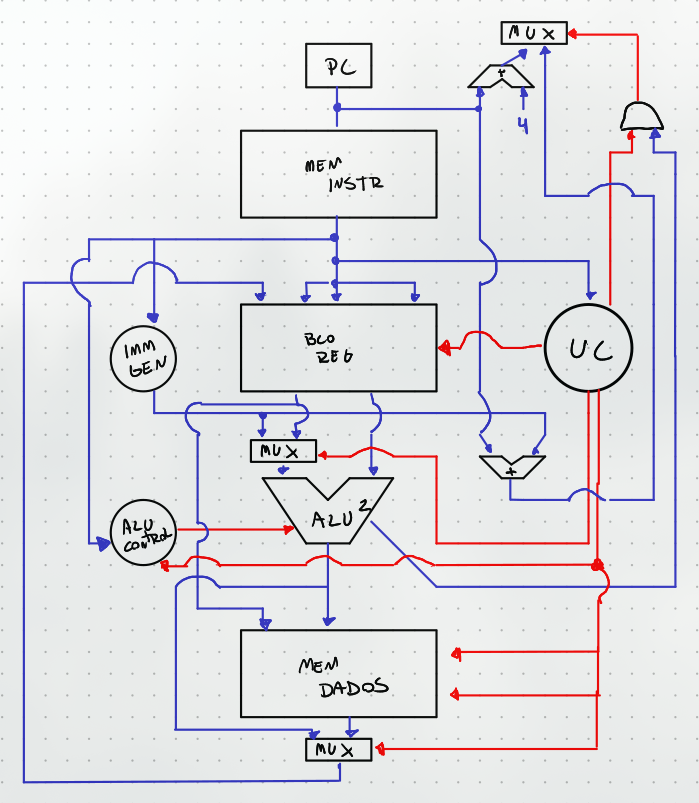 MUX
PC
+
4
MEN
INSTR
BCO
REG
UC
IMM
GEN
MUX
+
ALU
CONTROL
ALU 2
MEN
DADOS
MUX